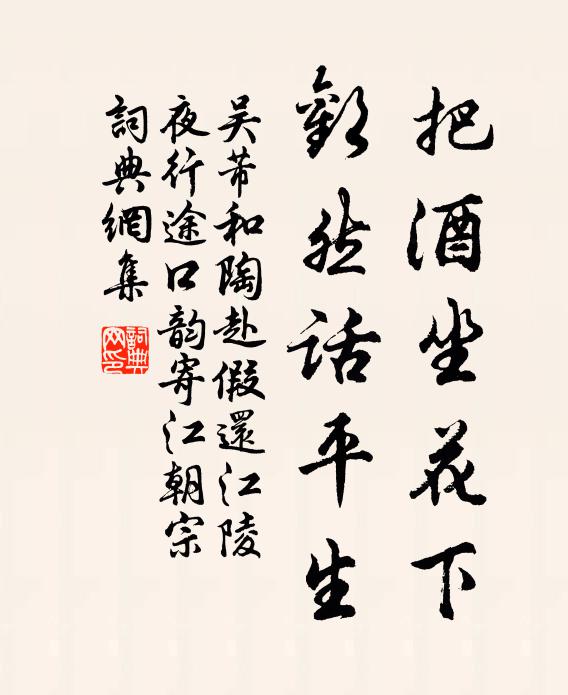 把酒坐花下
歡然話平生
吳芾和陶赴假還江陵
夜行途口韵寄江朝宗
詞典網集
詞典网印